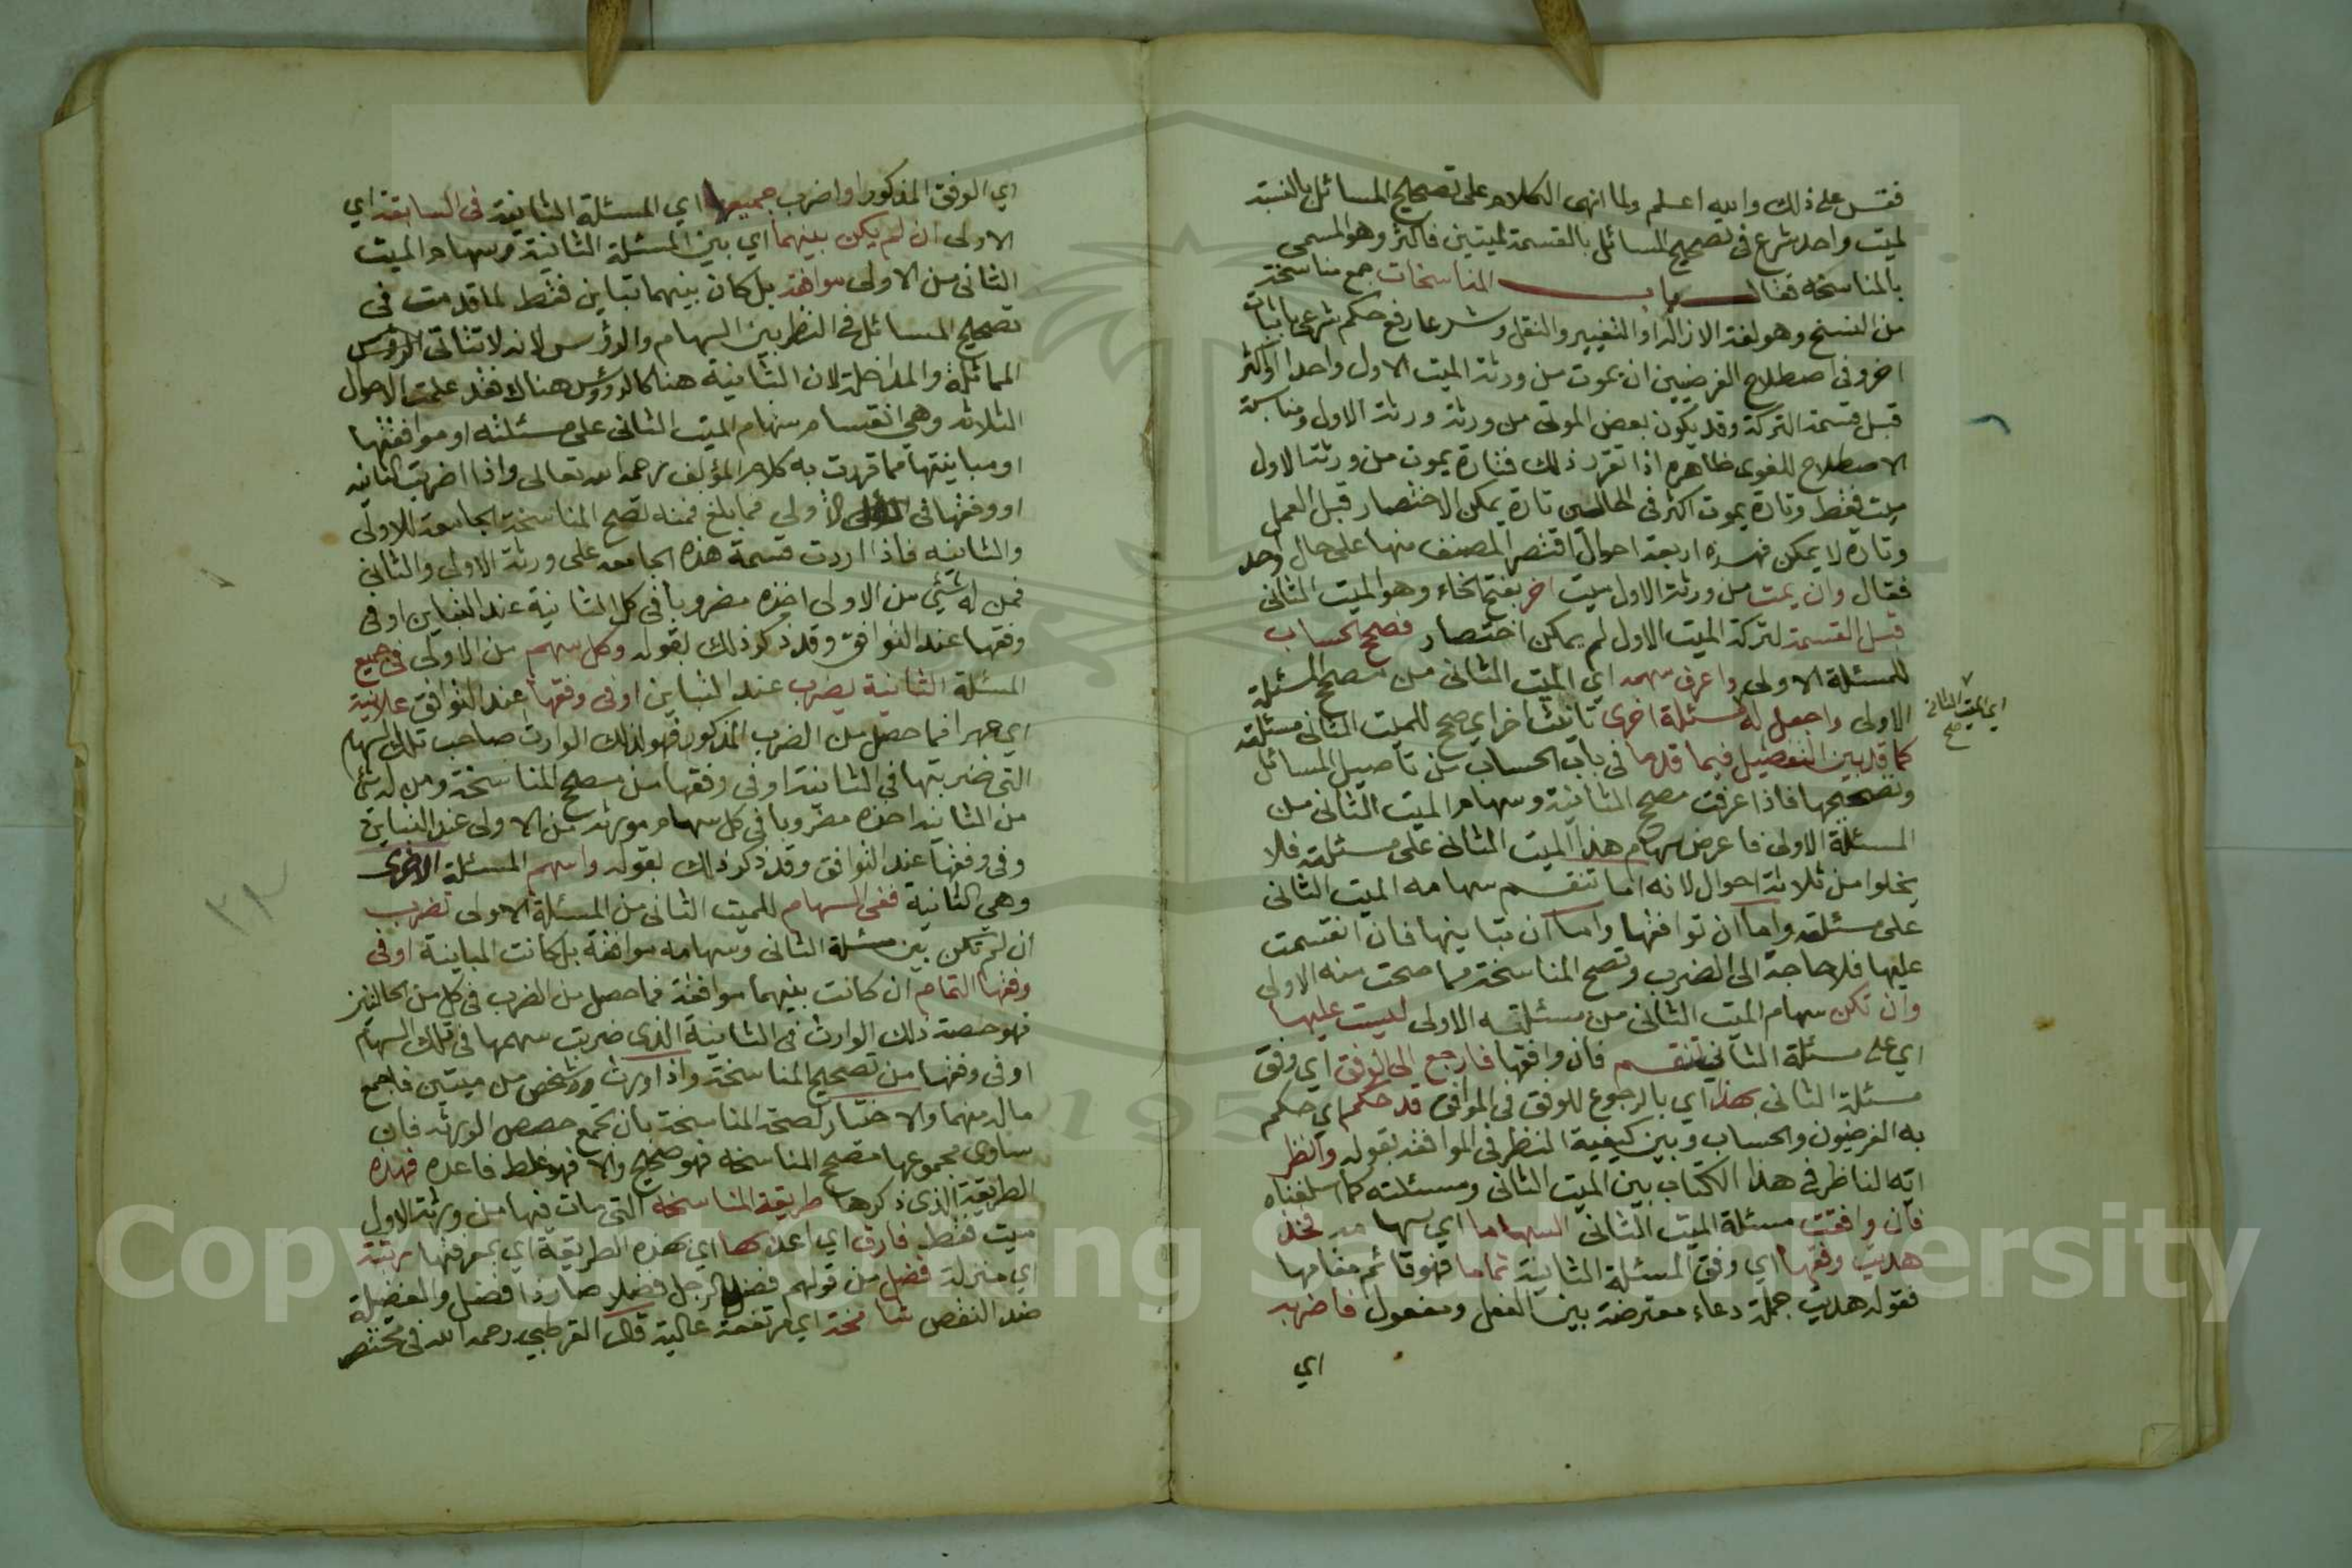 فقس على ذلك والله اعلم ولما انهى الكلام على تصحيح المسائل بالنسبة
لميت واحد شرع في تصحيح المسائل بالقسمة لميتين فاكثر وهو المسمى
بالمناسخة فقال باب المناسخات جمع مناسخة
من النسخ وهو لغة الازالة او التغيير والنقل وشرعا رفع حكم شرعي باثبات
اخر وفي اصطلاح الفرضيين ان يموت من ورثة الميت الاول واحد او اكثر
قبل قسمة التركة وقد يكون بعض الموتى من ورثة ورثة الاول ومناسبة
الاصطلاح للغوى ظاهره اذا تقرر ذلك فتارة يموت من ورثة الاول
ميت فقط وتارة يموت اكثر في الحالتين تارة يمكن الاختصار قبل العمل
وتارة لا يمكن فهذه اربعة احوال اقتصر المصنف منها على حال واحد
فقال وان يمت من ورثة الاول ميت اخر بفتح الخاء وهو الميت الثاني
قبل القسمة لتركة الميت الاول لم يمكن اختصار فصحح الحساب
للمسئلة الاولى واعرف سهمه اي الميت الثاني من مصحح المسئلة
الاولى واجعل له مسئلة اخرى تانيث اخر اي صحح للميت الثاني مسئلته
اي الميت الثاني صح
كما قد بين التفصيل فيما قدما في باب الحساب من تاصيل المسائل
وتصحيحها فاذا عرفت مصحح الثانية وسهام الميت الثاني من
المسئلة الاولى فاعرض سهام هذا الميت الثاني على مسئلته فلا
يخلوا من ثلاثة احوال لانه اما تنقسم سهامه الميت الثاني
على مسئلته واما ان توافقها واما ان تباينها فان انقسمت
عليها فلا حاجة الى الضرب وتصح المناسخة مما صحت منه الاولى
وان تكن سهام الميت الثاني من مسئلته الاولى ليست عليها
اي على مسئلة الثاني تنقسم فان وافقها فارجع الى الوفق اي وفق
مسئلة الثاني بهذا اي بالرجوع للوفق في الموافق قد حكم اي حكم
به الفرضيون والحساب وبين كيفية النظر في الموافقه بقوله وانظر
ايه الناظر في هذا الكتاب بين الميت الثاني ومسئلته كما اسلفناه
فان وافقت مسئلة الميت الثاني السهاما اي سهامه فخذ
هديت وفقها اي وفق المسئلة الثانية تماما فهو قائم مقامها
فقوله هديت جملة دعاء معترضة بين الفعل ومفعول فاضربه
اي
اي الوفق المذكور او اضرب جميعها اي المسئلة الثانية في السابقة اي
الاولى ان لم يكن بينهما اي بين المسئلة الثانية وسهام الميت
الثاني من الاولى موافقة بل كان بينهما تباين فقط لما قدمت في
تصحيح المسائل في النظر بين السهام والرؤس لانه لا تتاتى الرؤس
المماثلة والمداخلة لان الثانية هنا كالرؤس هنالا فقد علمت الاحوال
الثلاثه وهي انقسام سهام الميت الثاني على مسئلته او موافقتها
او مباينتها مما قررت به كلام المؤلف رحمه الله تعالى واذا اضربت الثانيه
او وفقها في الاولي فما بلغ فمنه تصح المناسخة الجامعة للاولى
والثانيه فاذا اردت قسمة هذه الجامعه على ورثة الاولى والثاني
فمن له شئي من الاولى اخذه مضروبا في كل الثانية عند التباين او في
وفقها عند التوافق وقد ذكر ذلك بقوله وكل سهم من الاولى في جميع
المسئلة الثانية يضرب عند التباين او في وفقها عند التوافق علانية
اي جهرا فما حصل من الضرب المذكور فهو لذلك الوارث صاحب تلك السهام
التي ضربتها في الثانية او في وفقها من مصحح المناسخة ومن له شئ
من الثانيه اخذه مضروبا في كل سهام مورثه من الاولى عند التباين
وفي وفقها عند التوافق وقد ذكر ذلك بقوله واسهم المسئلة الاخرى
وهي الثانية ففي السهام للميت الثاني من المسئلة الاولى تضرب
ان لم تكن بين مسئلة الثاني وسهامه موافقة بل كانت المباينة او في
وفقها التمام ان كانت بينهما موافقة فما حصل من الضرب في كل من الحالتين
فهو حصة ذلك الوارث في الثانية الذي ضربت سهمها في تلك السهام
او في وفقها من تصحيح المناسخة واذا ورث شخص من ميتين فاجمع
ماله منهما والاختبار لصحة المناسخة بان تجمع حصص الورثه فان
ساوى مجموعها مصحح المناسخة فهو صحيح والا فهو غلط فاعده فهذه
الطريقة الذى ذكرها طريقة المناسخة التي مات فيها من ورثة الاول
ميت فقط فارق اي اعد بها اي بهذه الطريقة اي بمعرفتها رتبة
اي منزلة فضل من قولهم فضل الرجل فضلا صار ذا فضل والفضيلة
ضد النقص شامخة اي مرتفعة عالية قال القرطبي رحمه الله في مختصر
Copyright © King Saud University
195